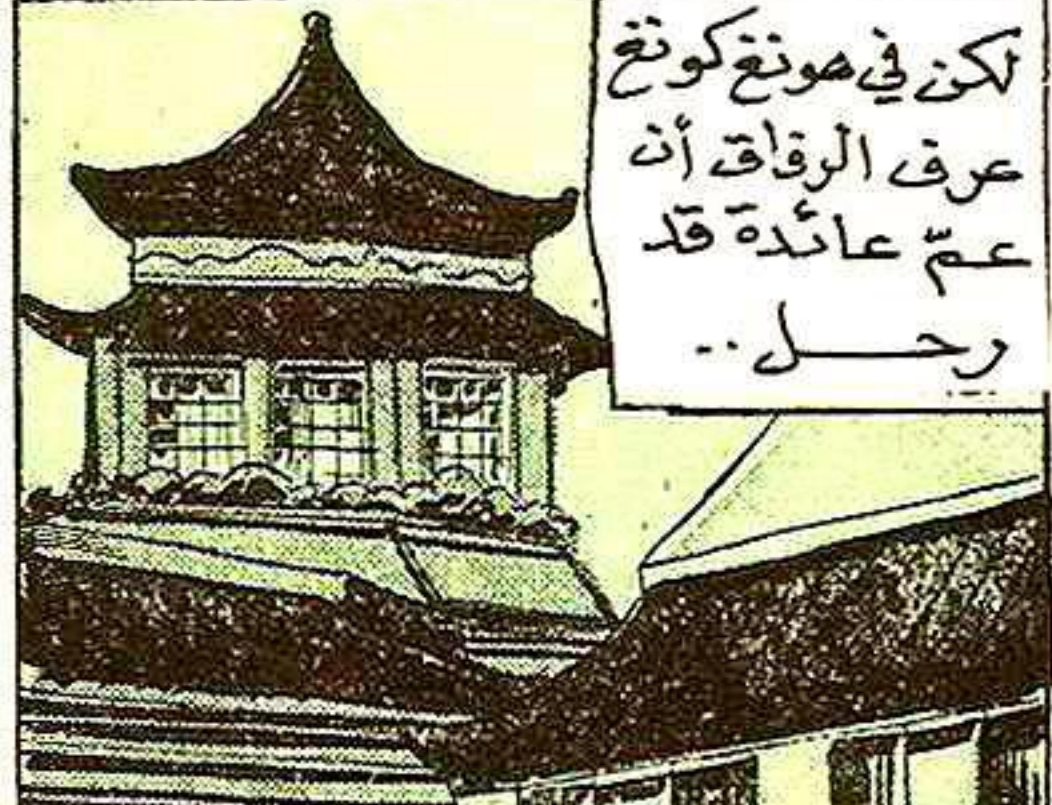 لكن في هونغ كونغ
عرف الرفاق أن
عمّ عائدة قد
رحل..